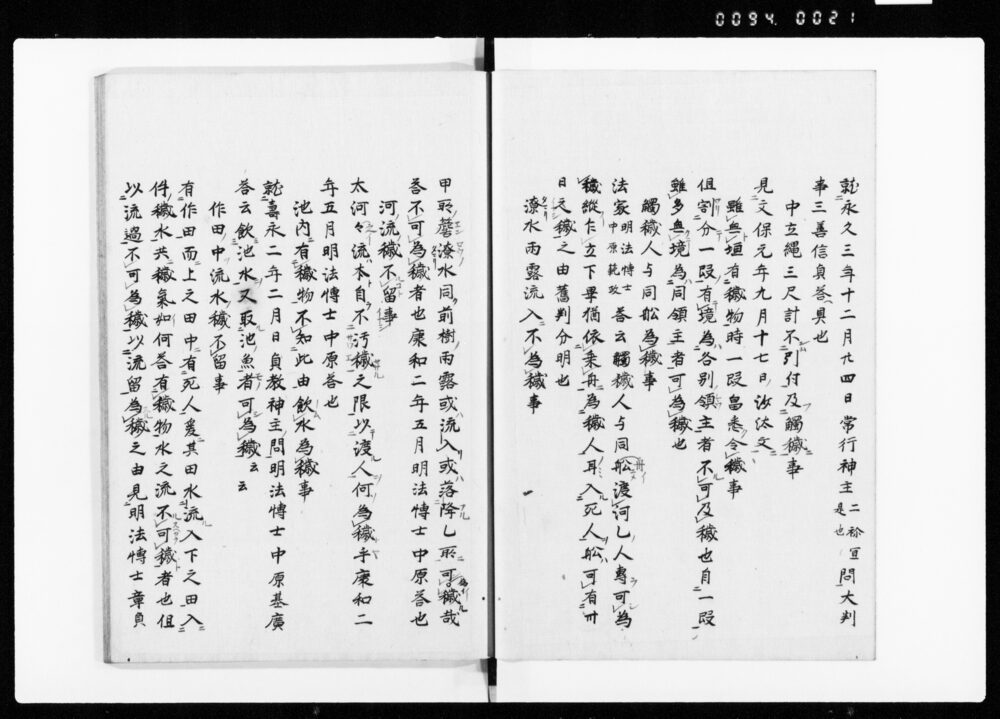 0094.0021
就永久三年十二月廿四日常行神主二祢宜是也問大判
事三善信貞荅具也
中立縄三尺計不引付及觸穢事
見文保元年九月十七日沙汰文
雖無垣有穢物時一段畠悉令穢事
但割分一段有境為各別領主者不可及穢也自一段
雖多無境為同領主者可為穢也
觸穢人与同舩為穢事
法家明法博士中原範政荅云觸穢人与同舩渡河乙人專可為
穢縦乍立下畢猶依乗舟為穢人耳入死人舩可有卅
日之穢之由舊判分明也
潦水雨露流入不為穢事
甲所潦水同前樹雨露或流入或落降乙所可穢哉
荅不可為穢者也康和二年五月明法博士中原荅也
河流穢不留事
太河々流本自不汚穢之限以渡人何為穢乎康和二
年五月明法博士中原荅也
池内有穢物不知此由飲水為穢事
就喜永二年二月日貞教神主問明法博士中原基廣
荅云飲池水又取池魚者可為穢云云
作田中流水穢不留事
有作田而上之田中有死人爰其田水流入下之田入
件穢水共穢氣如何荅有穢物水之流不可穢者也但
以流過不可為穢以流留為穢之由見明法博士章貞